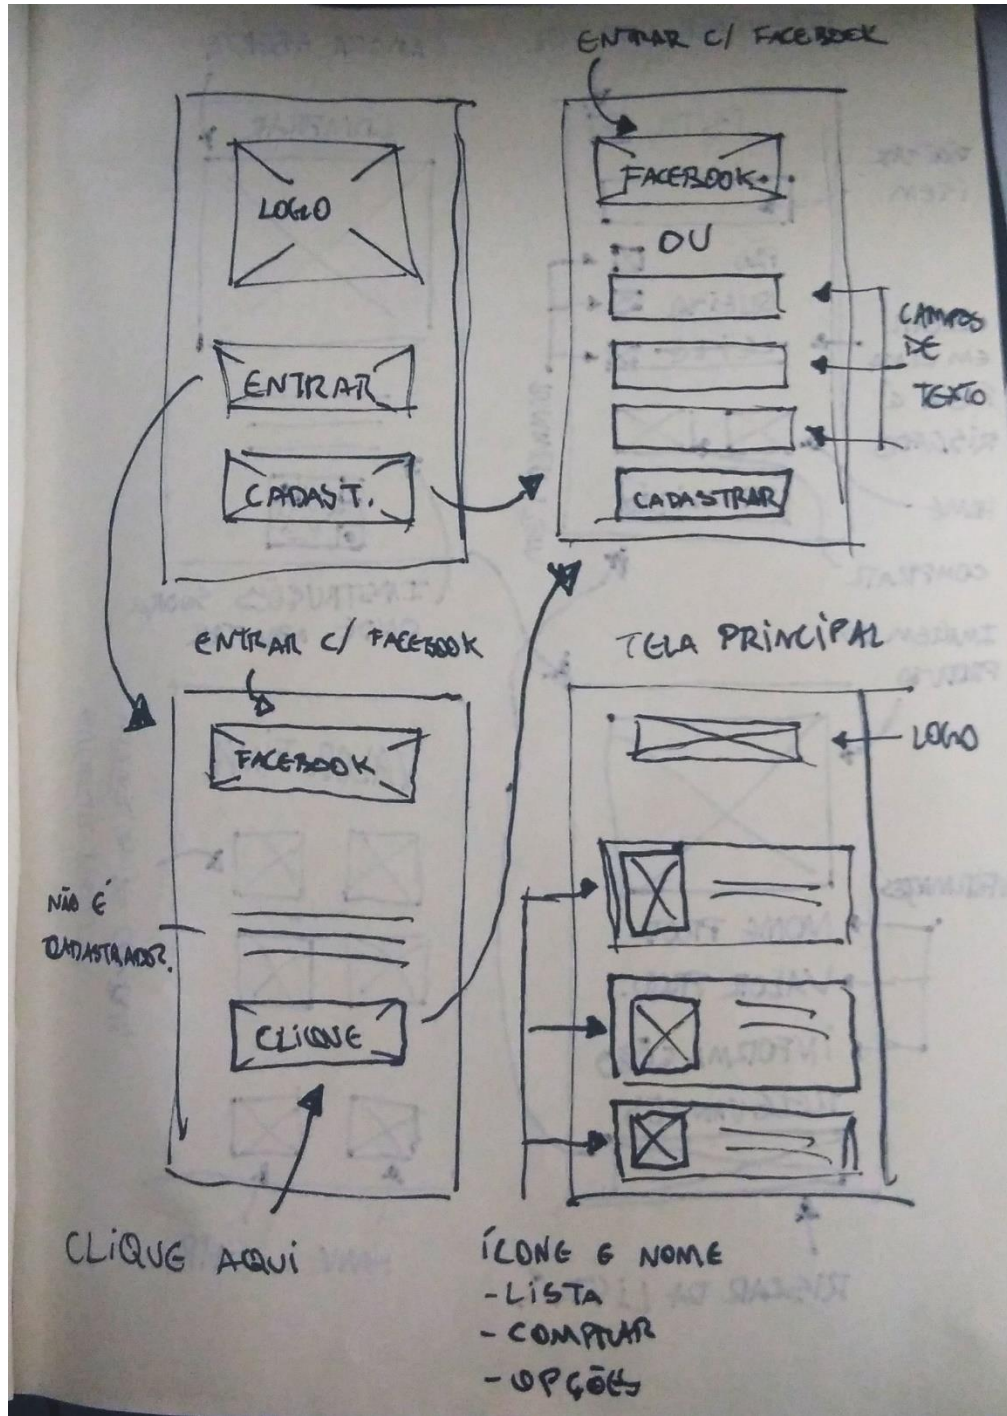 ENTRAR C/ FACEBOOK
LOGO
ENTRAR
CADAST.
FACEBOOK
OU
CAMPOS
DE
TEXTO
CADASTRAR
ENTRAR C/ FACEBOOK
FACEBOOK
NÃO É
CLIQUE
CLIQUE AQUI
TELA PRINCIPAL
LOGO
ÍCONE E NOME
- LISTA
- COMPRAR
- OPÇÕES